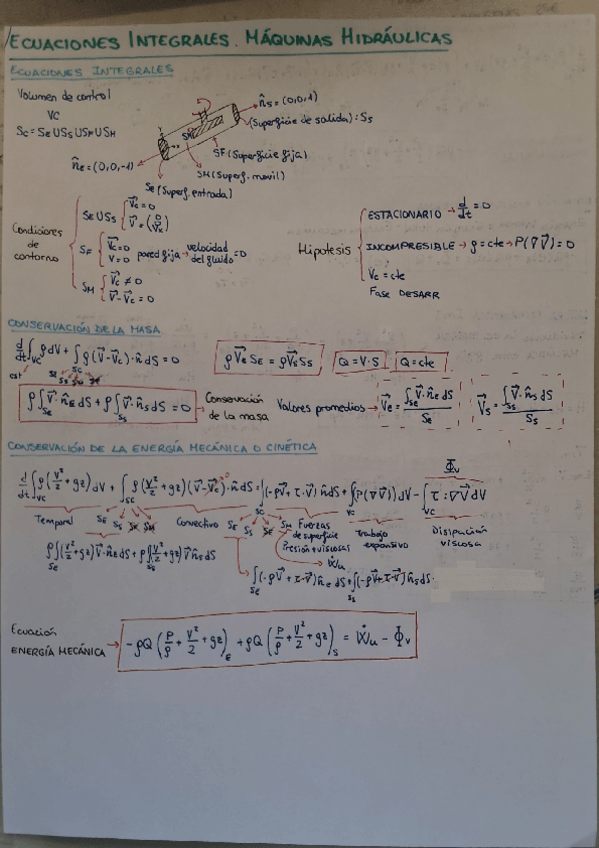 ECUACIONES INTEGRALES. MÁQUINAS HIDRÁULICAS
ECUACIONES INTEGRALES
Volumen de control
VC
Sc = Se U Ss U SM U SM
n̂s = (0,0,1)
(Superficie de salida): Ss
SF (Superficie fija)
SM (Superf. movil)
n̂e = (0,0,-1)
Se (Superf. entrada)
Condiciones de contorno
Se U Ss { V⃗c = 0
V⃗ = (0 Vz)
SF { V⃗c = 0
V = 0 pared fija → velocidad del fluido = 0
SM { V⃗c ≠ 0
V⃗ - V⃗c = 0
Hipotesis
ESTACIONARIO → d/dt = 0
INCOMPRESIBLE → ρ = cte → P(∇V⃗) = 0
Vc = cte
FASE DESARR
CONSERVACIÓN DE LA MASA
d/dt ∫VC ρ dV + ∫SC ρ (V⃗ - V⃗c) · n̂ dS = 0
est
SE SS SF SM
ρ V⃗e SE = ρ V⃗s Ss
Q = V · S
Q = cte
ρ ∫Se V⃗ · n̂E dS + ρ ∫Ss V⃗ · n̂s dS = 0 → Conservación de la masa
Valores promedios → V⃗e = ∫Se V⃗ · n̂E dS / Se
V⃗s = ∫Ss V⃗ · n̂s dS / Ss
CONSERVACIÓN DE LA ENERGÍA MECÁNICA O CINÉTICA
Φv
d/dt ∫VC ρ (V²/2 + gz) dV + ∫SC ρ (V²/2 + gz) (V⃗ - V⃗c) · n̂ dS = ∫SC (-ρV⃗ + τ · V⃗) n̂ dS + ∫VC (P(∇V⃗)) dV - ∫VC τ : ∇V⃗ dV
Temporal
SE SS SF SM
Convectivo
SE SS SF SM
Fuerzas de superficie
Presión + viscosas
Trabajo expansivo
Disipación viscosa
Ẇu
ρ ∫Se (V²/2 + gz) V⃗ · n̂E dS + ρ ∫Ss (V²/2 + gz) V⃗ n̂s dS
∫Se (-ρV⃗ + τ · V⃗) n̂E dS + ∫Ss (-ρV⃗ + τ · V⃗) n̂s dS
Ecuación ENERGÍA MECÁNICA → -ρQ (P/ρ + V²/2 + gz)E + ρQ (P/ρ + V²/2 + gz)S = Ẇu - Φv